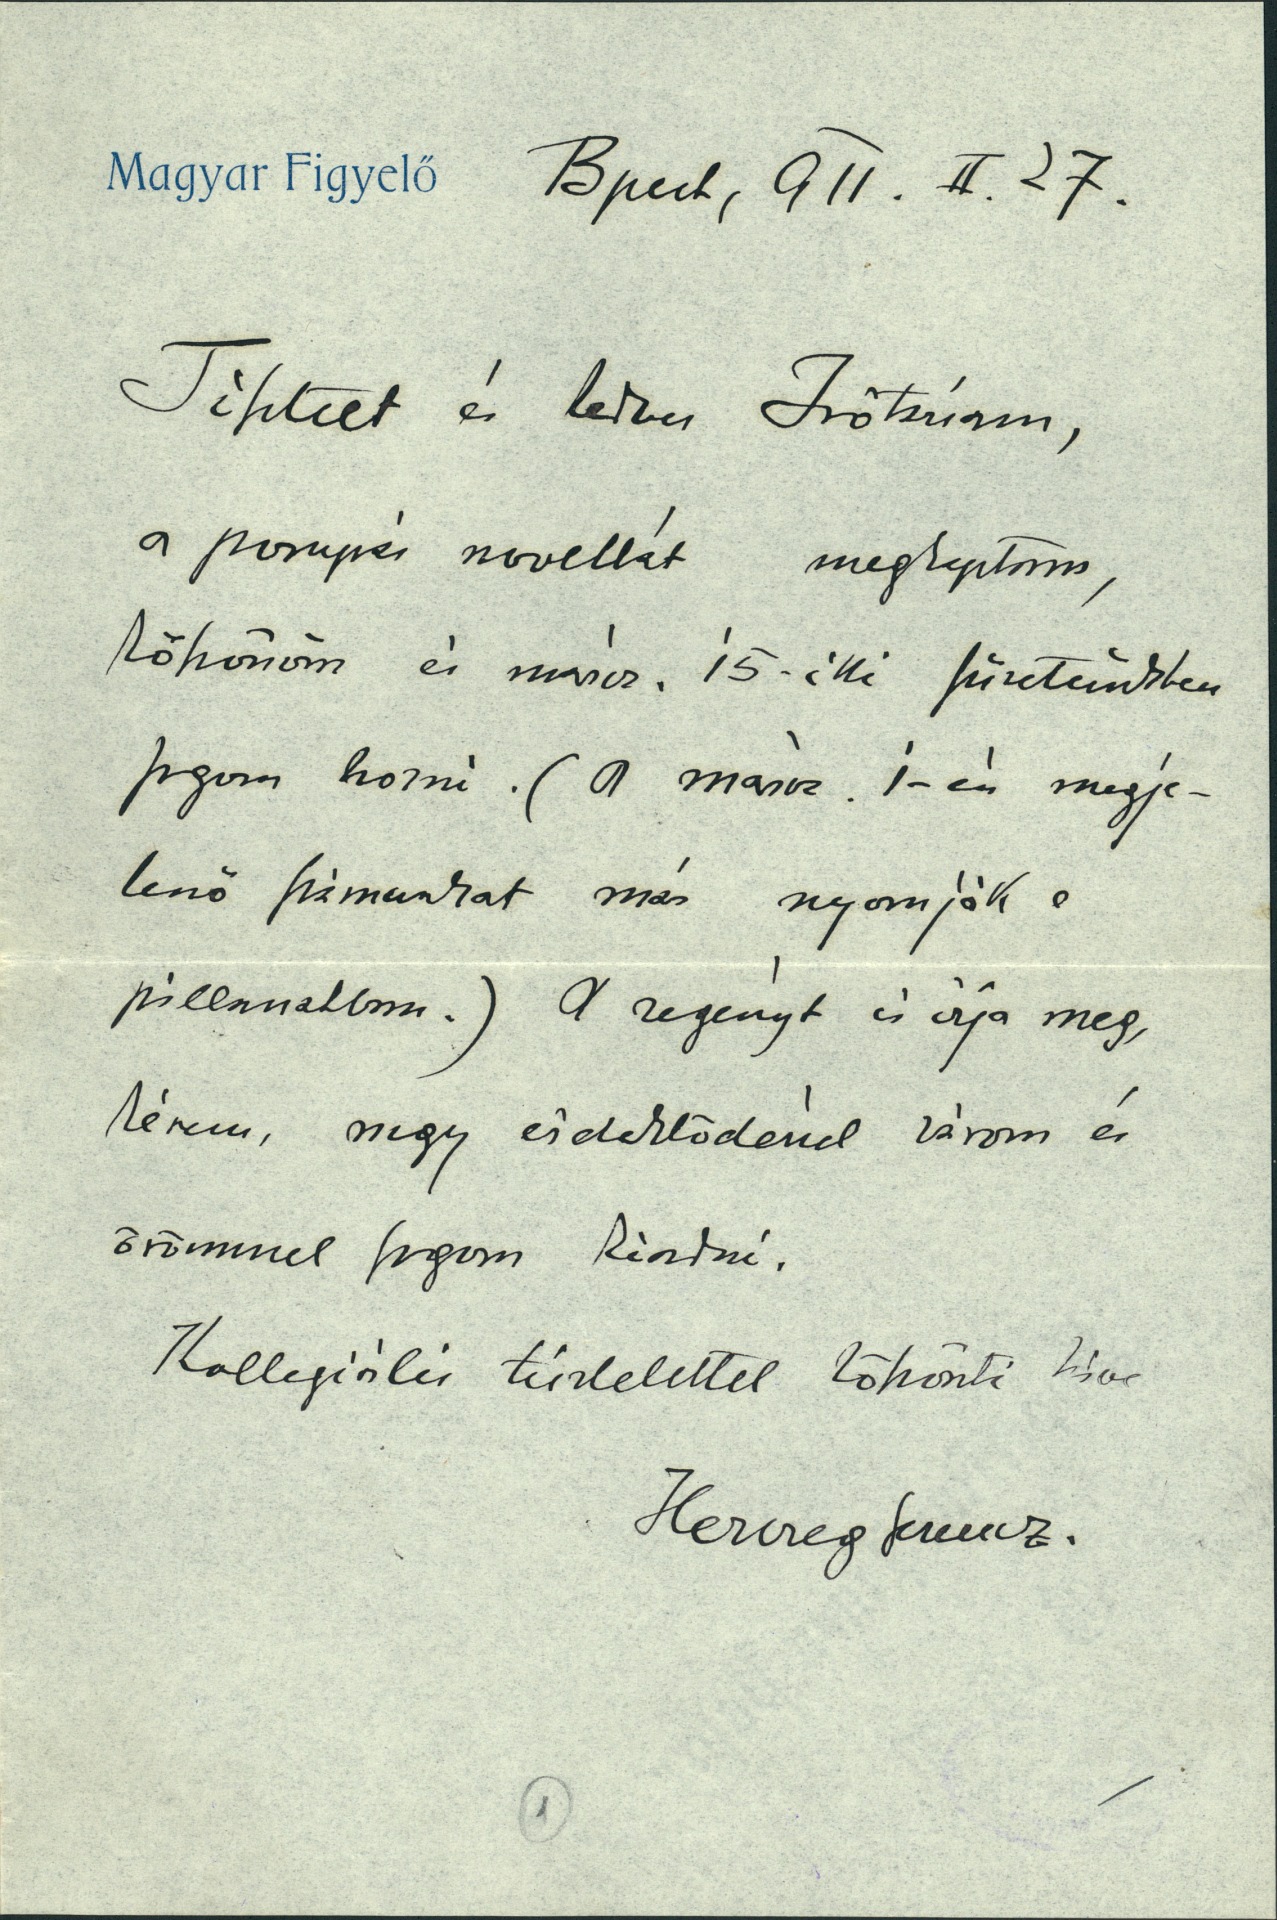 Magyar Figyelő
Bpest, 911. II. 27.
Tisztelt és kedves Irótársam,
a pompás novellát megkaptam,
köszönöm és márcz. 15-iki füzetünkben
fogom hozni. (A márcz. 1-én megje-
lenő számunkat már nyomják e
pillanatban.) A regényt is írja meg,
kérem, nagy érdeklődéssel várom és
örömmel fogom kiadni.
Kollegiális tisztelettel köszönti híve
Herczeg Ferencz.
1